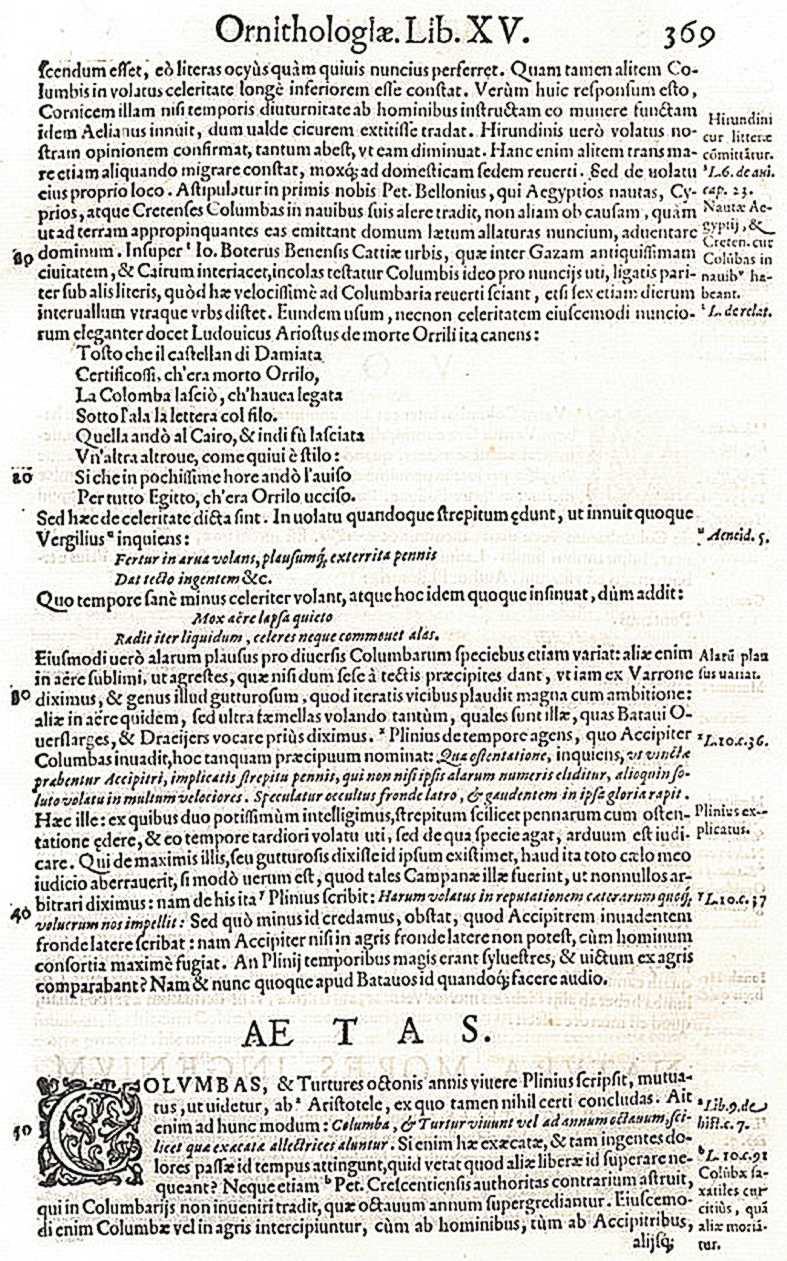 Ornithologiæ. Lib. XV. 369
ſcendum eſſet, eò literas ocyùs quàm quiuis nuncius perferret. Quam tamen alitem Co-
lumbis in volatus celeritate longè inferiorem eſſe conſtat. Verùm huic reſponſum eſto,
Cornicem illam niſi temporis diuturnitate ab hominibus inſtructam eo munere functam
idem Aelianus innuit, dum ualde cicurem extitiſſe tradat. Hirundinis uerò volatus no-
ſtram opinionem confirmat, tantum abeſt, vt eam diminuat. Hanc enim alitem trans ma-
re etiam aliquando migrare conſtat, moxq́; ad domeſticam ſedem reuerti. Sed de uolatu
eius proprio loco. Aſtipulatur in primis nobis Pet. Bellonius, qui Aegyptios nautas, Cy-
prios, atque Cretenſes Columbas in nauibus ſuis alere tradit, non aliam ob cauſam, quàm
ut ad terram appropinquantes eas emittant domum lætum allaturas nuncium, aduentare
dominum. Inſuper ᵗ Io. Boterus Benenſis Cattiæ urbis, quæ inter Gazam antiquiſſimam
ciuitatem, & Cairum interiacet, incolas teſtatur Columbis ideo pro nuncijs uti, ligatis pari-
ter ſub alis literis, quòd hæ velociſſimè ad Columbaria reuerti ſciant, etſi ſex etiam dierum
interuallum vtraque vrbs diſtet. Eundem uſum, necnon celeritatem eiuſcemodi nuncio-
rum eleganter docet Ludouicus Arioſtus de morte Orrili ita canens:
Toſto che il caſtellan di Damiata
Certificoſſi, ch'era morto Orrilo,
La Colomba laſciò, ch'hauea legata
Sotto l'ala la lettera col filo.
Quella andò al Cairo, & indi fù laſciata
Vn'altra altroue, come quiui è ſtilo:
20 Si che in pochiſſime hore andò l'auiſo
Per tutto Egitto, ch'era Orrilo ucciſo.
Sed hæc de celeritate dicta ſint. In uolatu quandoque ſtrepitum ędunt, ut innuit quoque
Vergilius ᵘ inquiens:
Fertur in arua volans, plauſumq́; exterrita pennis
Dat tecto ingentem &c.
Quo tempore ſanè minus celeriter volant, atque hoc idem quoque inſinuat, dùm addit:
Mox aëre lapſa quieto
Radit iter liquidum, celeres neque commouet alas.
Eiuſmodi uerò alarum plauſus pro diuerſis Columbarum ſpeciebus etiam variat: aliæ enim
in aëre ſublimi, ut agreſtes, quæ niſi dum ſeſe à tectis præcipites dant, vt iam ex Varrone
30 diximus, & genus illud gutturoſum, quod iteratis vicibus plaudit magna cum ambitione:
aliæ in aëre quidem, ſed ultra fæmellas volando tantùm, quales ſunt illæ, quas Bataui O-
uerſlarges, & Draeijers vocare priùs diximus. ˣ Plinius de tempore agens, quo Accipiter
Columbas inuadit, hoc tanquam præcipuum nominat: Qua oſtentatione, inquiens, vt vinctæ
præbentur Accipitri, implicatis ſtrepitu pennis, qui non niſi ipſis alarum numeris eliditur, alioquin ſo-
luto volatu in multum velociores. Speculatur occultus fronde latro, & gaudentem in ipſa gloria rapit.
Hæc ille: ex quibus duo potiſſimùm intelligimus, ſtrepitum ſcilicet pennarum cum oſten-
tatione ędere, & eo tempore tardiori volatu uti, ſed de qua ſpecie agat, arduum eſt iudi-
care. Qui de maximis illis, ſeu gutturoſis dixiſſe id ipſum exiſtimet, haud ita toto cælo meo
iudicio aberrauerit, ſi modò uerum eſt, quod tales Campanæ illæ fuerint, ut nonnullos ar-
bitrari diximus: nam de his ita ʸ Plinius ſcribit: Harum volatus in reputationem cæterarum quoq́;
40 volucrum nos impellit: Sed quò minus id credamus, obſtat, quod Accipitrem inuadentem
fronde latere ſcribat: nam Accipiter niſi in agris fronde latere non poteſt, cùm hominum
conſortia maximè fugiat. An Plinij temporibus magis erant ſylueſtres, & uictum ex agris
comparabant? Nam & nunc quoque apud Batauos id quandoq́; facere audio.
AETAS.
COLVMBAS, & Turtures octonis annis viuere Plinius ſcripſit, mutua-
tus, ut uidetur, ab ᵃ Ariſtotele, ex quo tamen nihil certi concludas. Ait
50 enim ad hunc modum: Columba, & Turtur viuunt vel ad annum octauum, ſci-
licet quæ exæcatæ allectrices aluntur. Si enim hæ exæcatæ, & tam ingentes do-
lores paſſæ id tempus attingunt, quid vetat quod aliæ liberæ id ſuperare ne-
queant? Neque etiam ᵇ Pet. Creſcentienſis authoritas contrarium aſtruit,
qui in Columbarijs non inueniri tradit, quæ octauum annum ſupergrediantur. Eiuſcemo-
di enim Columbæ vel in agris intercipiuntur, cùm ab hominibus, tùm ab Accipitribus,
alijſq́;
Hirundini
cur litteræ
cõmittãtur.
ˢ L. 6. de aui.
cap. 23.
Nautæ Ae-
gyptij, &
Creten. cur
Colũbas in
nauibᵘ ha-
beant.
ᵗ L. de relat.
ᵘ Aeneid. 5.
Alarũ plau
ſus uariat.
ˣ L. 10. c. 36.
Plinius ex-
plicatus.
ʸ L. 10. c. 37
ᵃ Lib. 9. de
hiſt. c. 7.
ᵇ L. 10. c. 91
Colũbæ ſa-
xatiles cur
citiùs, quã
aliæ moriã-
tur.